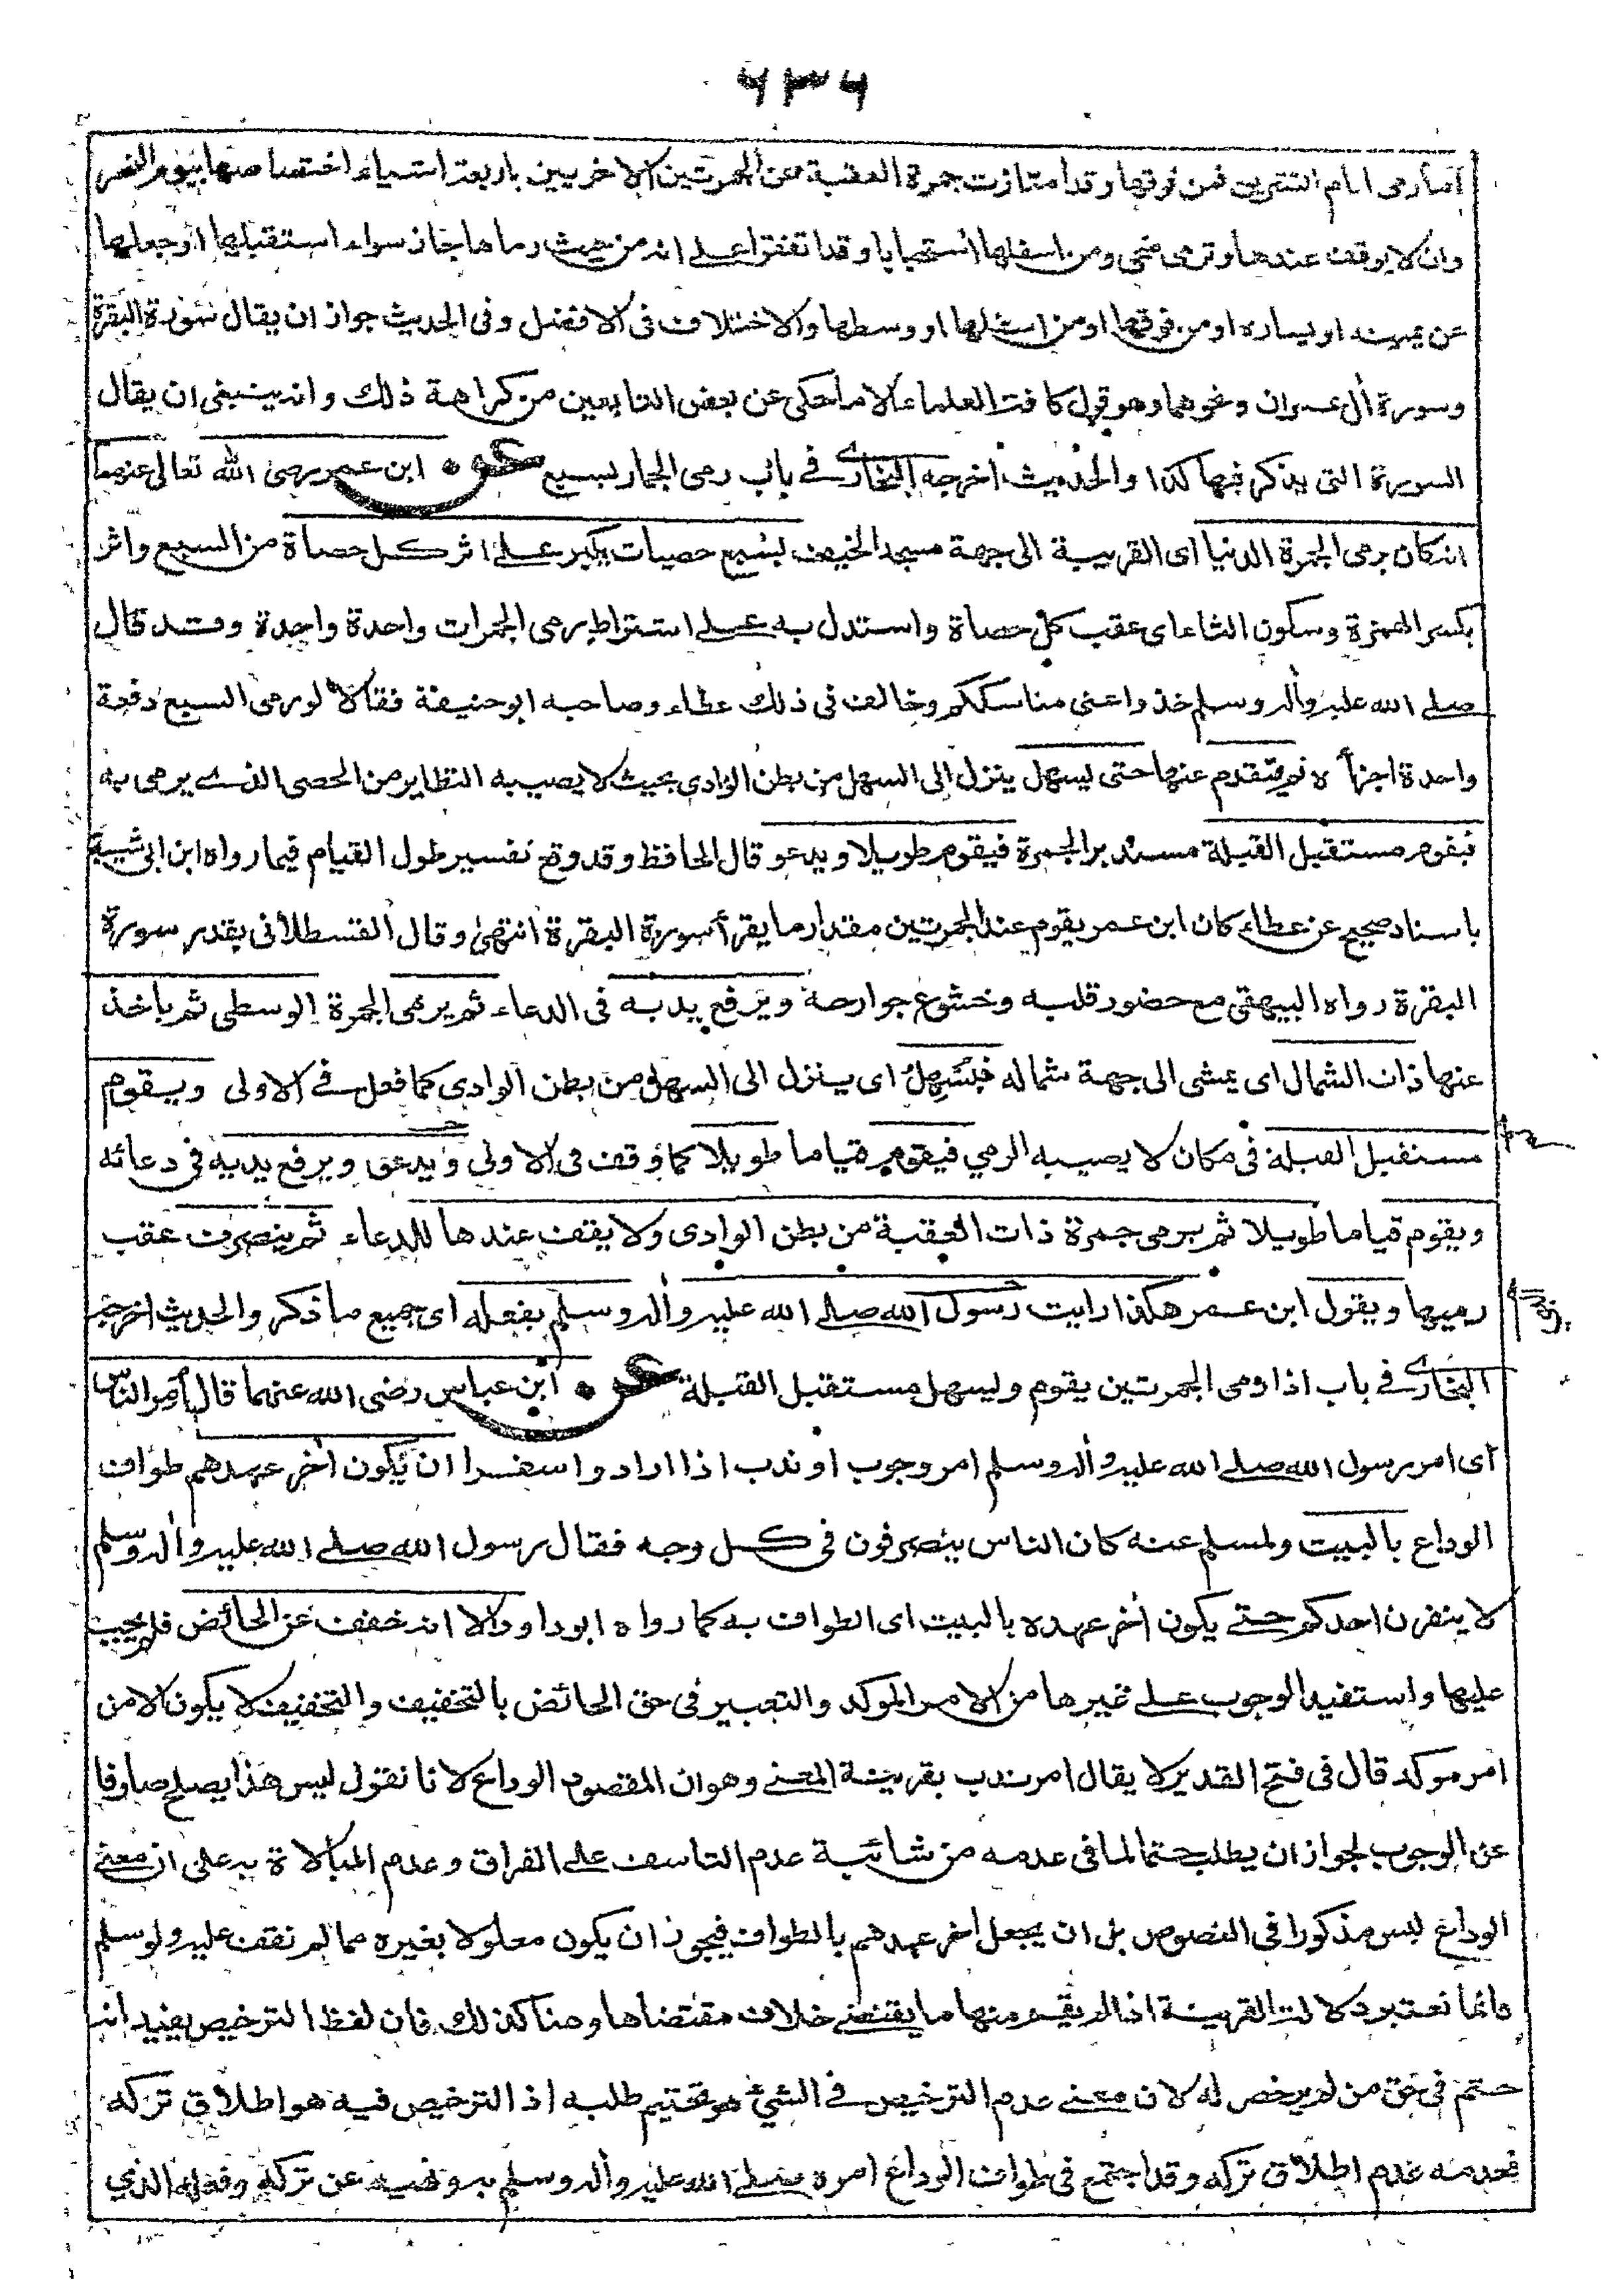 ٦٣٦
اما رمى ايام التشريق فمن فوقها وقد امتازت جمرة العقبة عن الجمرتين الاخريين باربعة اشياء اختصاصها بيوم النحر
وان لا يوقف عندها وترمى ضحى ومن اسفلها استحبابا وقد اتفقوا على انه من حيث رماها جاز سواء استقبلها او جعلها
عن يمينه او يساره او من فوقها او من اسفلها او وسطها والاختلاف فى الافضل وفى الحديث جواز ان يقال سورة البقرة
وسورة اٰل عمران ونحوهما وهو قول كافة العلماء الا ما حكى عن بعض التابعين من كراهة ذلك وانه ينبغى ان يقال
السورة التى يذكر فيها كذا والحديث اخرجه البخارى فى باب رمى الجمار بسبع عن ابن عمر رضى الله تعالى عنهما
انه كان يرمى الجمرة الدنيا اى القريبة الى جهة مسجد الخيف بسبع حصيات يكبر على اثر كل حصاة من السبع واثر
بكسر الهمزة وسكون الثاء اى عقب كل حصاة واستدل به على اشتراط رمى الجمرات واحدة واحدة وقد قال
صلى الله عليه واٰله وسلم خذوا عنى مناسككم وخالف فى ذلك عطاء وصاحبه ابو حنيفة فقالا لو رمى السبع دفعة
واحدة اجزأه ثم يتقدم عنها حتى يسهل ينزل الى السهل من بطن الوادى بحيث لا يصيبه التطاير من الحصى الذى يرمى به
فيقوم مستقبل القبلة مستدبر الجمرة فيقوم طويلا ويدعو قال الحافظ وقد وقع تفسير طول القيام فيما رواه ابن ابى شيبة
باسناد صحيح عن عطاء كان ابن عمر يقوم عند الجمرتين مقدار ما يقرأ سورة البقرة انتهىٰ وقال القسطلانى بقدر سورة
البقرة رواه البيهقى مع حضور قلبه وخشوع جوارحه ويرفع يديه فى الدعاء ثم يرمى الجمرة الوسطى ثم ياخذ
عنها ذات الشمال اى يمشى الى جهة شماله فيُسْهِلُ اى ينزل الى السهل من بطن الوادى كما فعل فى الاولى ويقوم
مستقبل القبلة فى مكان لا يصيبه الرمي فيقوم قياما طويلا كما وقف فى الاولى ويدعو ويرفع يديه فى دعائه
ويقوم قياما طويلا ثم يرمى جمرة ذات العقبة من بطن الوادى ولا يقف عندها للدعاء ثم ينصرف عقب
رميها ويقول ابن عمر هكذا رايت رسول الله صلى الله عليه واٰله وسلم يفعله اى جميع ما ذكر والحديث اخرجه
البخارى فى باب اذا رمى الجمرتين يقوم ويسهل مستقبل القبلة عن ابن عباس رضى الله عنهما قال اُمِرَ الناس
اى امر رسول الله صلى الله عليه واٰله وسلم امر وجوب او ندب اذا ارادوا سفرا ان يكون اٰخر عهدهم طواف
الوداع بالبيت ولمسلم عنه كان الناس ينصرفون فى كل وجه فقال رسول الله صلى الله عليه واٰله وسلم
لا ينفرن احدكم حتى يكون اٰخر عهده بالبيت اى الطواف به كما رواه ابو داود الا انه خفف عن الحائض فلم يجب
عليها واستفيد الوجوب على غيرها من الامر الموكد والتعبير فى حق الحائض بالتخفيف والتخفيف لا يكون الا من
امر موكد قال فى فتح القدير لا يقال امر ندب بقرينة المعنى وهو ان المقصود الوداع لانا نقول ليس هذا يصلح صارفا
عن الوجوب لجواز ان يطلب حتما لما فى عدمه من شائبة عدم التاسف على الفراق وعدم المبالاة به على ان معنى
الوداع ليس مذكورا فى النصوص بل ان يجعل اٰخر عهدهم بالطواف فيجوز ان يكون معلولا بغيره مما لم نقف عليه ولو سلم
فانما نعتبر دلالة القرينة اذا لم يقم منها ما يقتضى خلاف مقتضاها وهنا كذلك فان لفظ الترخيص يفيد انه
حتم فى حق من لم يرخص له لان معنى عدم الترخيص فى الشئ هو تحتيم طلبه اذ الترخيص فيه هو اطلاق تركه
فعدمه عدم اطلاق تركه وقد اجتمع فى طواف الوداع امره صلى الله عليه واٰله وسلم به ونهيه عن تركه وفعله الذي